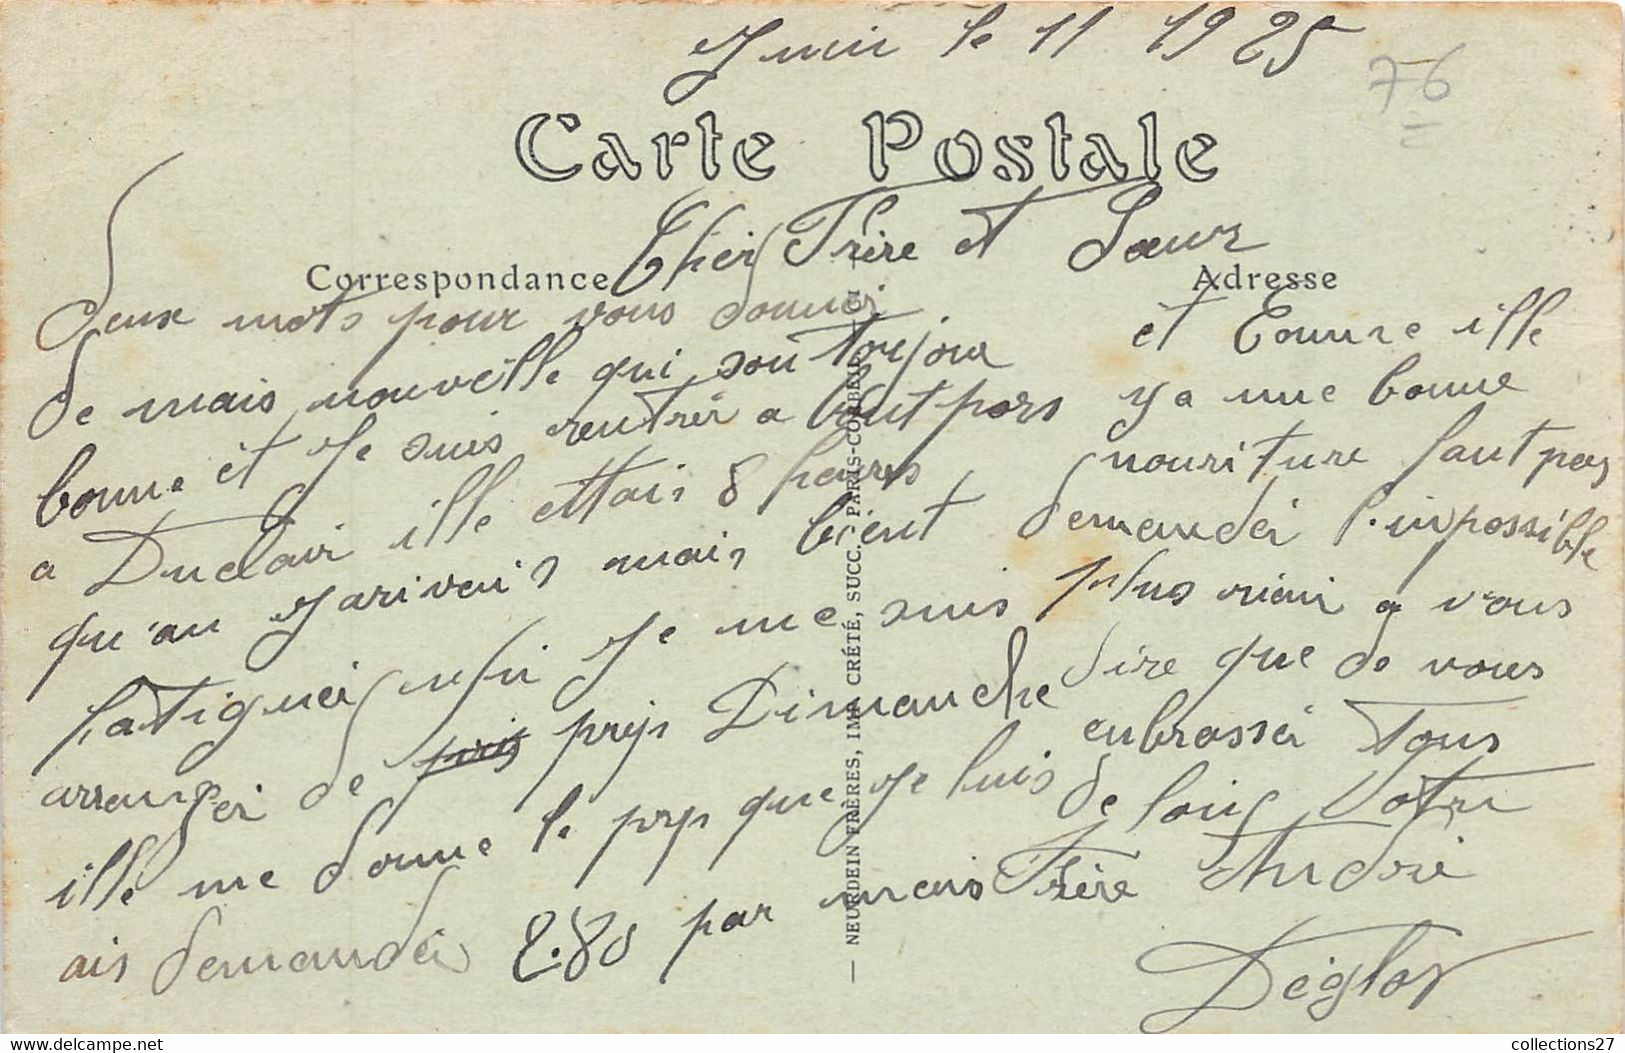 Juin le 11 1925
76
Carte Postale
Cher Frère et Sœur
Correspondance
Adresse
deux mots pour vous donnei
de mais nouvelle qui son toujour
bonne et Je suis rentréi a bout pors
a Duclair ille ettais 8 heures
qu'an J'ariveis mais bient
fatiguéi enfin Je me suis
arrangéi de pris prijs Dimanche
ille me donne le prijs que Je luis
ais demandéi 280 par mais
et Comme ille
y a une bonne
nouriture faut pas
demandéi l'impossible
plus riein a vous
dire que de vous
enbrasséi Tous
de loing Votre
Frère André
Déglos
— NEURDEIN FRÈRES, IMP. CRÉTÉ, SUCC. PARIS-CORBEIL
collections27